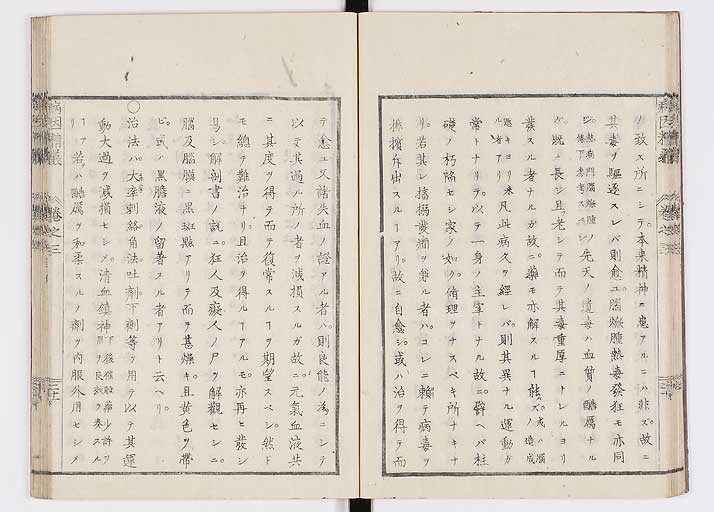 ノ致ス所ニシテ。本来精神ニ患アルニハ非ズ。故ニ
其毒ヲ駆逐スレバ則愈ユ。脳焮腫熱毒発狂モ亦同
ジ。熱病門脳焮腫條下参考スベシ先天ノ遺毒ハ血質ノ酷厲ナル
ガ。既ニ長ジ且老シテ而テ其毒重厚ニ
発スル者ナルガ故ニ。薬モ亦解スルヿ能ズ。或ハ脳ノ造成
ル者アリ凡此病久ヲ経レバ。則其異ナル運動ガ
常トナリテ。以テ一身ノ主掌トナル故ニ。譬ヘバ柱
礎ノ朽陥セシ家ノ如ク。脩理ヲナスベキ所ナキナ
リ。若其レ発ヲ兼ル者ハ。コレニ頼テ病毒ヲ
排擯斥出スルヿアリ。故ニ自愈シ。或ハ治ヲ得テ而
テ愈ユ又諸失血ノ證アル者ハ。則良能ノ為ニシテ
以テ其過ル所ノ者ヲ減損スルガ故ニ。元気血液共
ニ其度ヲ得テ而テ復常スルヿヲ期望スベシ。然ド
モ総テ難治ナリ。且治ヲ得ルヿアルモ。亦再ヒ発シ
易シ解剖書ノ説ニ。狂人及癡人ノ尸ヲ解観セシニ。
脳及脳膜ニ黒斑縣アリテ而テ甚燥キ。且黄色ヲ帯
ビ。或ハ黒膽液ノ留著スル者アリト云ヘリ。
〇治法ハ。大率刺絡角法。吐剤下剤等ヲ用テ以テ其運
動太過ヲ減損セシメ。清血鎮神
ヿア若ハ酷厲ヲ和柔スルノ剤ヲ内服外用セシメ
病因精義
巻之三